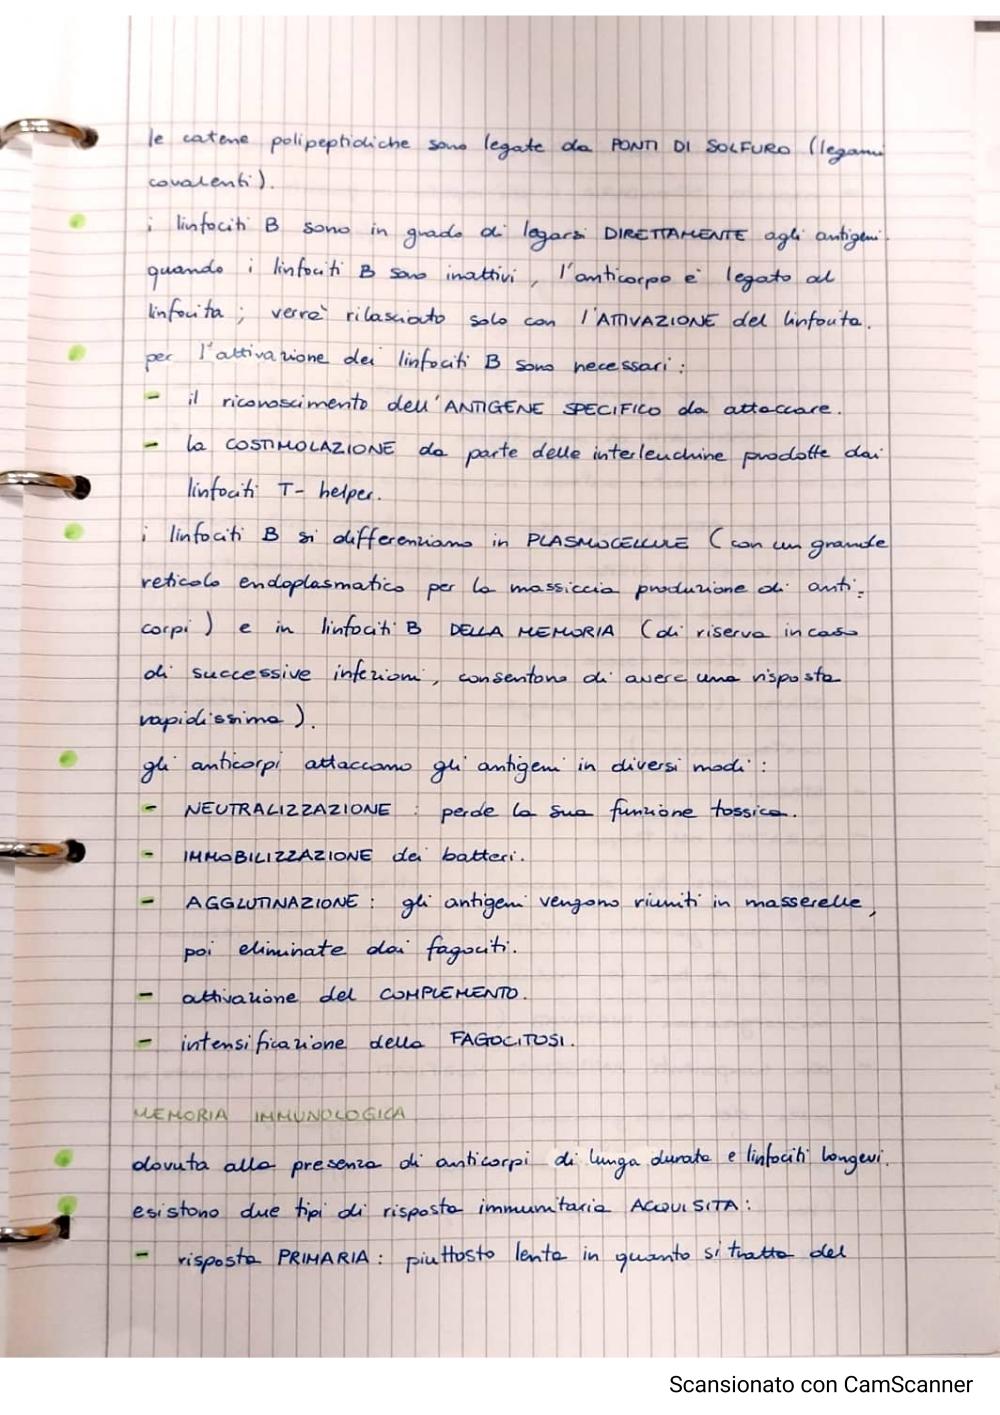 le catene polipeptidiche sono legate da PONTI DI SOLFURO (legami
covalenti).
i linfociti B sono in grado di legarsi DIRETTAMENTE agli antigeni.
quando i linfociti B sono inattivi, l'anticorpo è legato al
linfocita; verrà rilasciato solo con l'ATTIVAZIONE del linfocita.
per l'attivazione dei linfociti B sono necessari:
- il riconoscimento dell'ANTIGENE SPECIFICO da attaccare.
- la COSTIMOLAZIONE da parte delle interleuchine prodotte dai
linfociti T-helper.
i linfociti B si differenziano in PLASMOCELLULE (con un grande
reticolo endoplasmatico per la massiccia produzione di anti-
corpi) e in linfociti B DELLA MEMORIA (di riserva in caso
di successive infezioni, consentono di avere una risposta
rapidissima).
gli anticorpi attaccano gli antigeni in diversi modi:
- NEUTRALIZZAZIONE: perde la sua funzione tossica.
- IMMOBILIZZAZIONE dei batteri.
- AGGLUTINAZIONE: gli antigeni vengono riuniti in masserelle,
poi eliminate dai fagociti.
- attivazione del COMPLEMENTO.
- intensificazione della FAGOCITOSI.
MEMORIA IMMUNOLOGICA
dovuta alla presenza di anticorpi di lunga durata e linfociti longevi.
esistono due tipi di risposta immunitaria ACQUISITA:
- risposta PRIMARIA: piuttosto lenta in quanto si tratta del
Scansionato con CamScanner